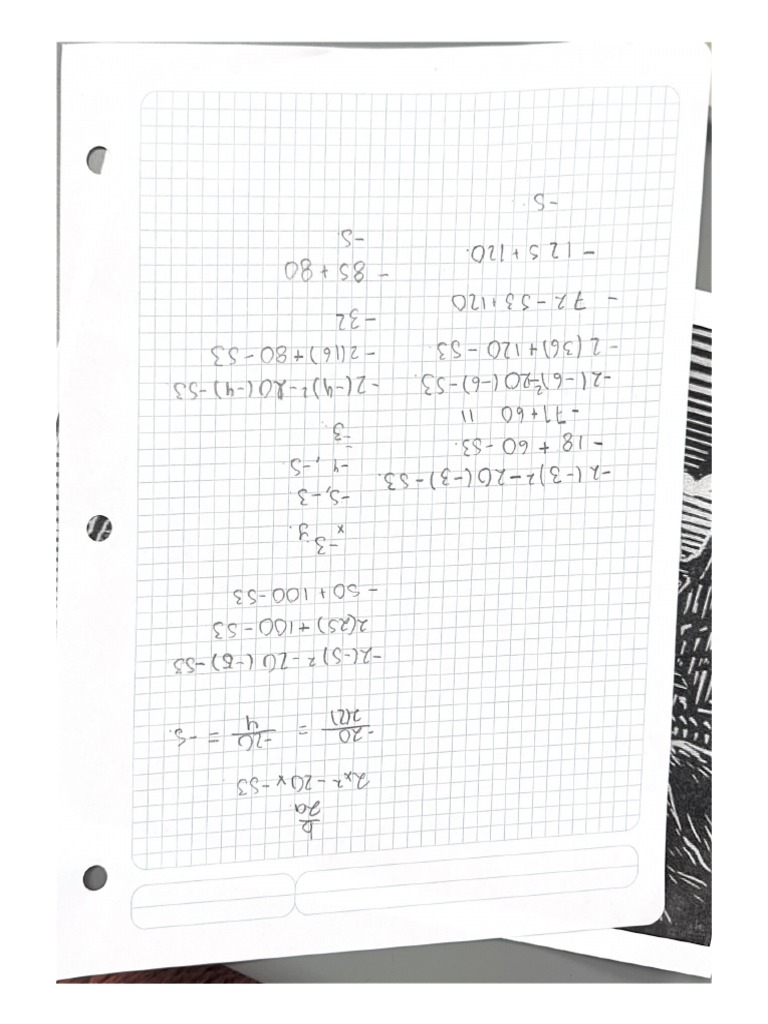 b
2a
2x² -20x -53
-20 / 2(2) = -20 / 4 = -5.
-2(-5)² -20(-5)-53
2(25)+100-53
-50+100-53
-3
x y.
-5,-3
-4,-5
-3
-2(-3)²-20(-3)-53.
-18+60-53.
-71+60 11
-2(-6)²-20(-6)-53.
-2(36)+120-53
-72-53+120
-125+120.
-5.
-2(-4)²-20(-4)-53
-2(16)+80-53
-32
-85+80
-5.